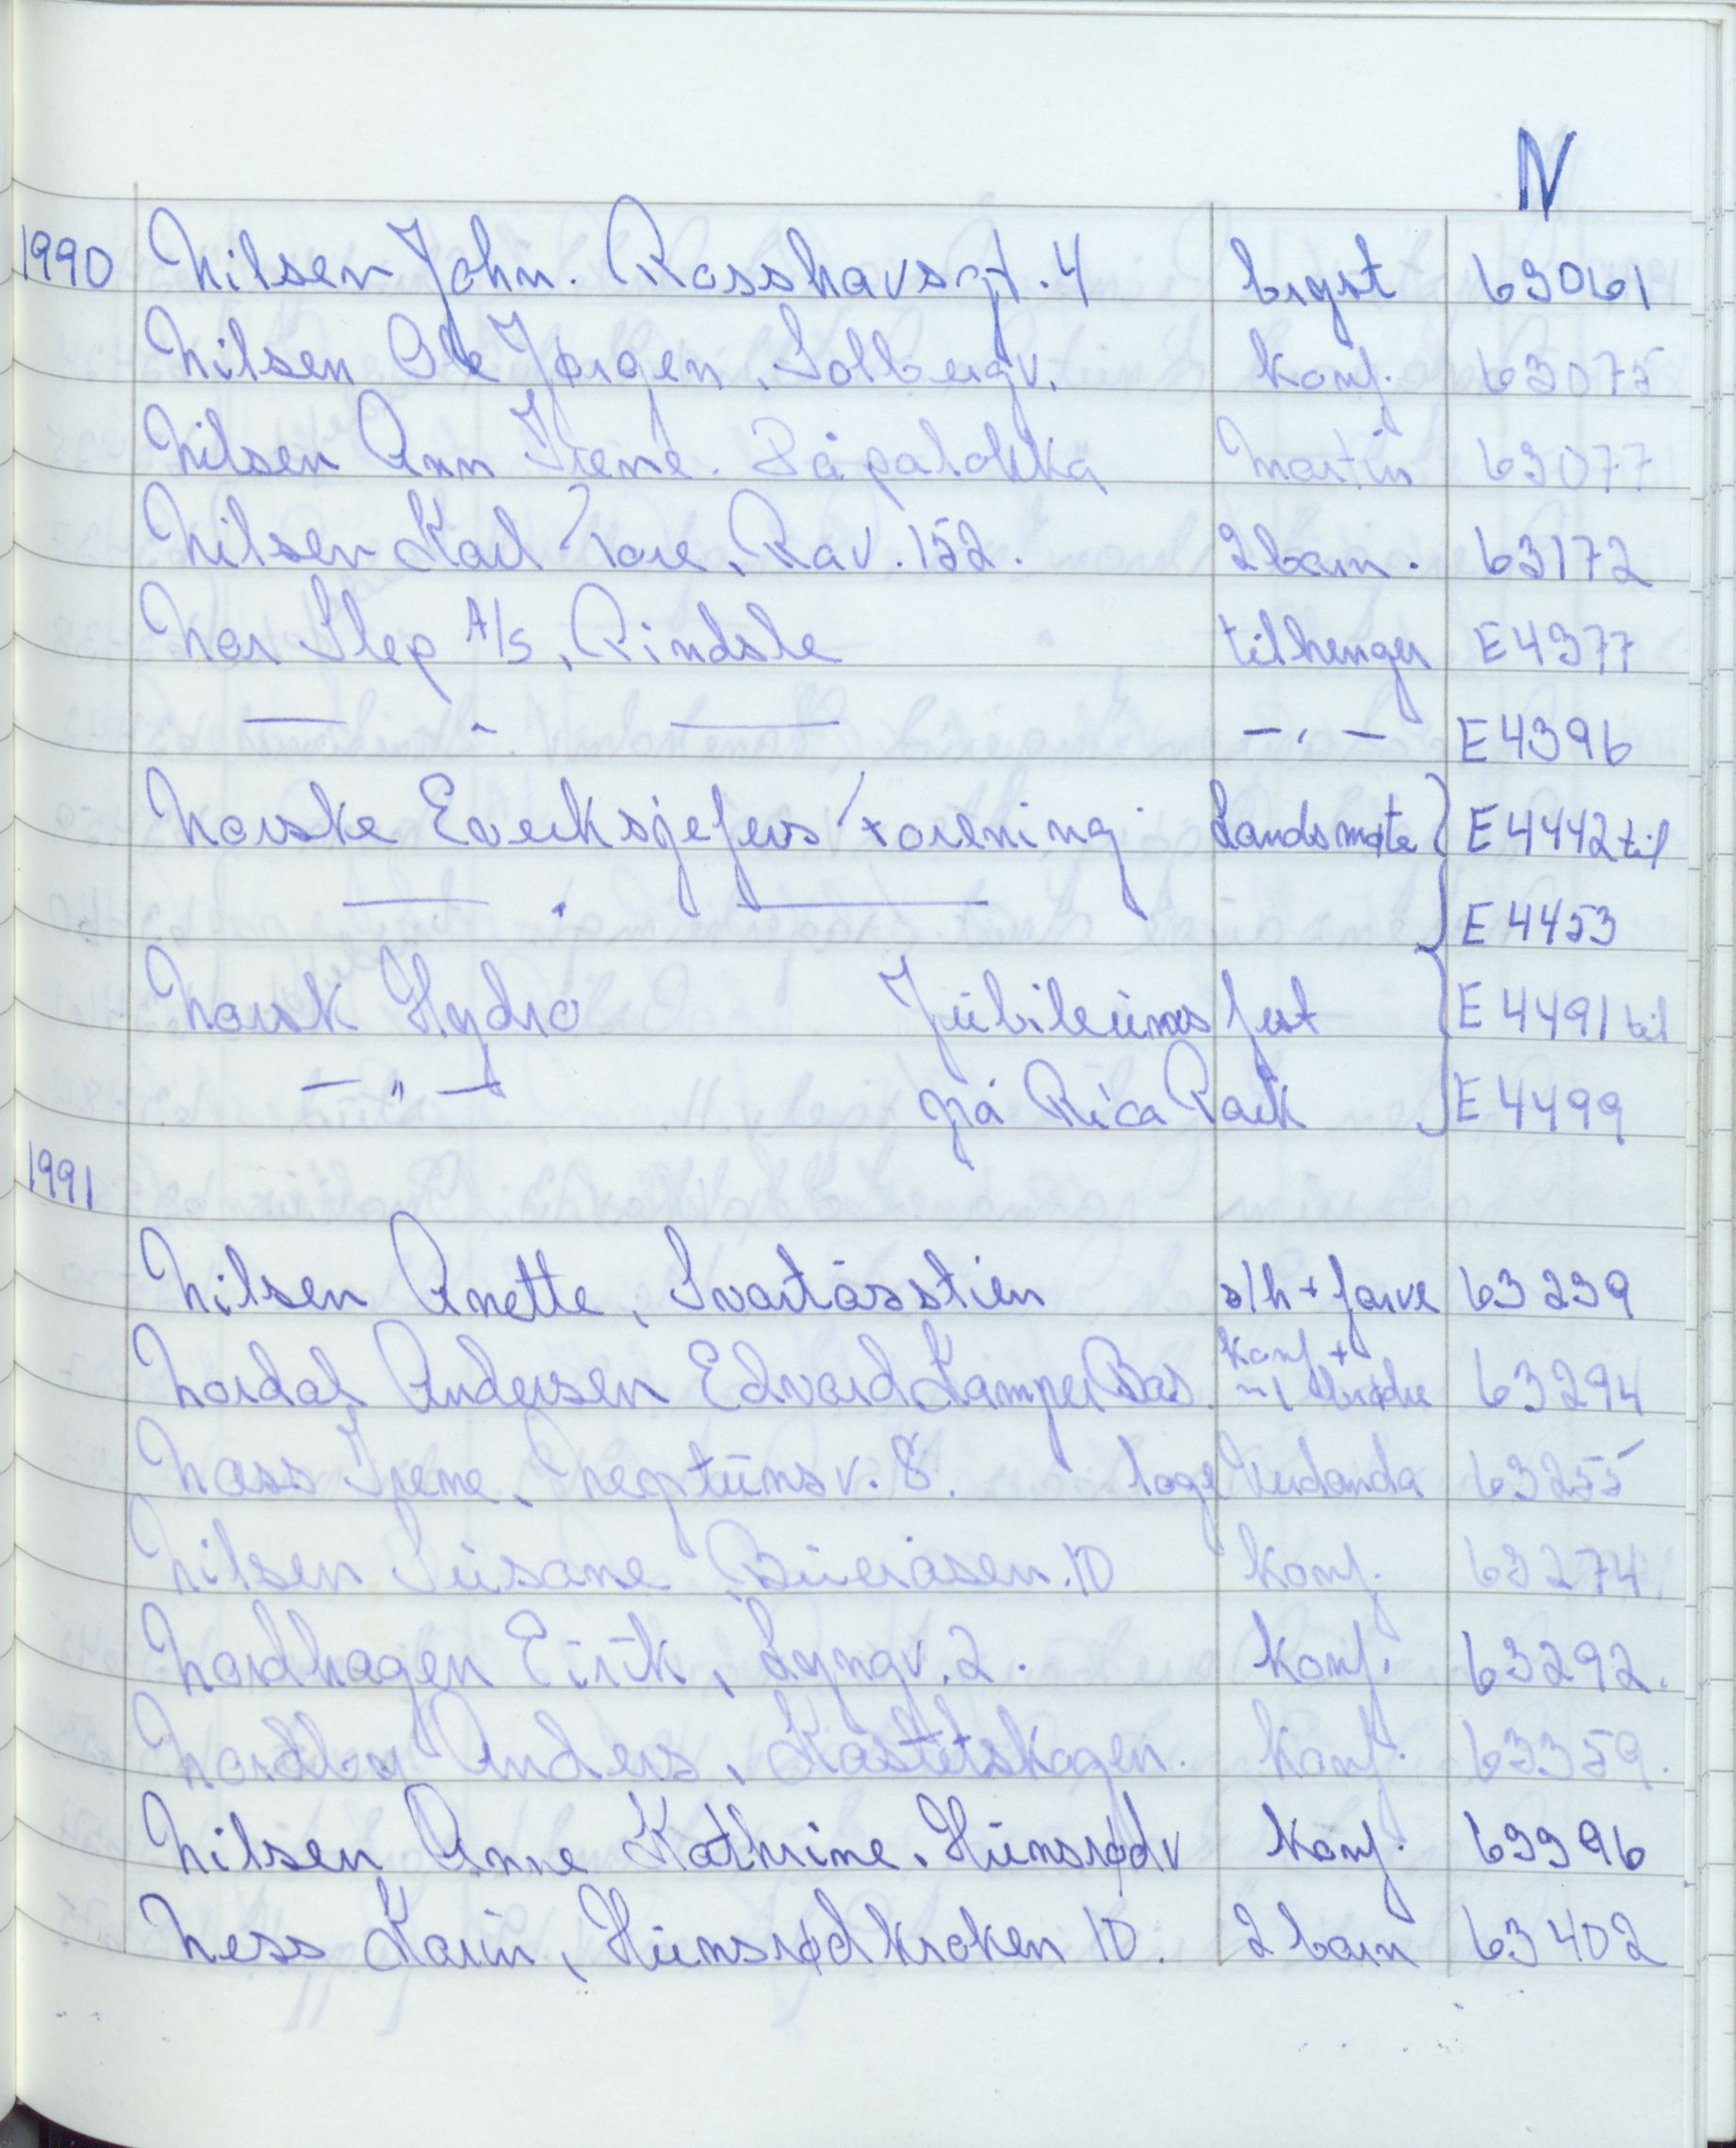 N
1990 Nilsen John. Rosshavsgt. 4 bryst 63061
Nilsen Ole Jørgen, Solbergv. konf. 63075
Nilsen Ann Irene. Påpaløkka Martin 63077
Nilsen Karl Tore, Rav. 152. 2 barn. 63172
Nor Slep A/S, Rindsle tilhenger E4377
— " — — " — E4396
Norske Everksjefers Forening Landsmøte E4442 til
— " — E4453
Norsk Hydro Jubileumsfest E4491 til
— " — på Rica Park E4499
1991
Nilsen Anette, Svartåsstien s/h + farve 63239
Nordal Andersen Edvard Kamper Bas. konf + m/ brødre 63294
Næss Irene, Neptunsv. 8. loge Verdanda 63255
Nilsen Susane Bueråsen. 10 konf. 63274
Nordhagen Eirik, Lyngv. 2. konf. 63292.
Nordby Anders, Kastetskogen. konf. 63359.
Nilsen Anne Kathrine. Hunsrødv konf. 63396
Ness Karin, Hunsrødkroken 10. 2 barn 63402